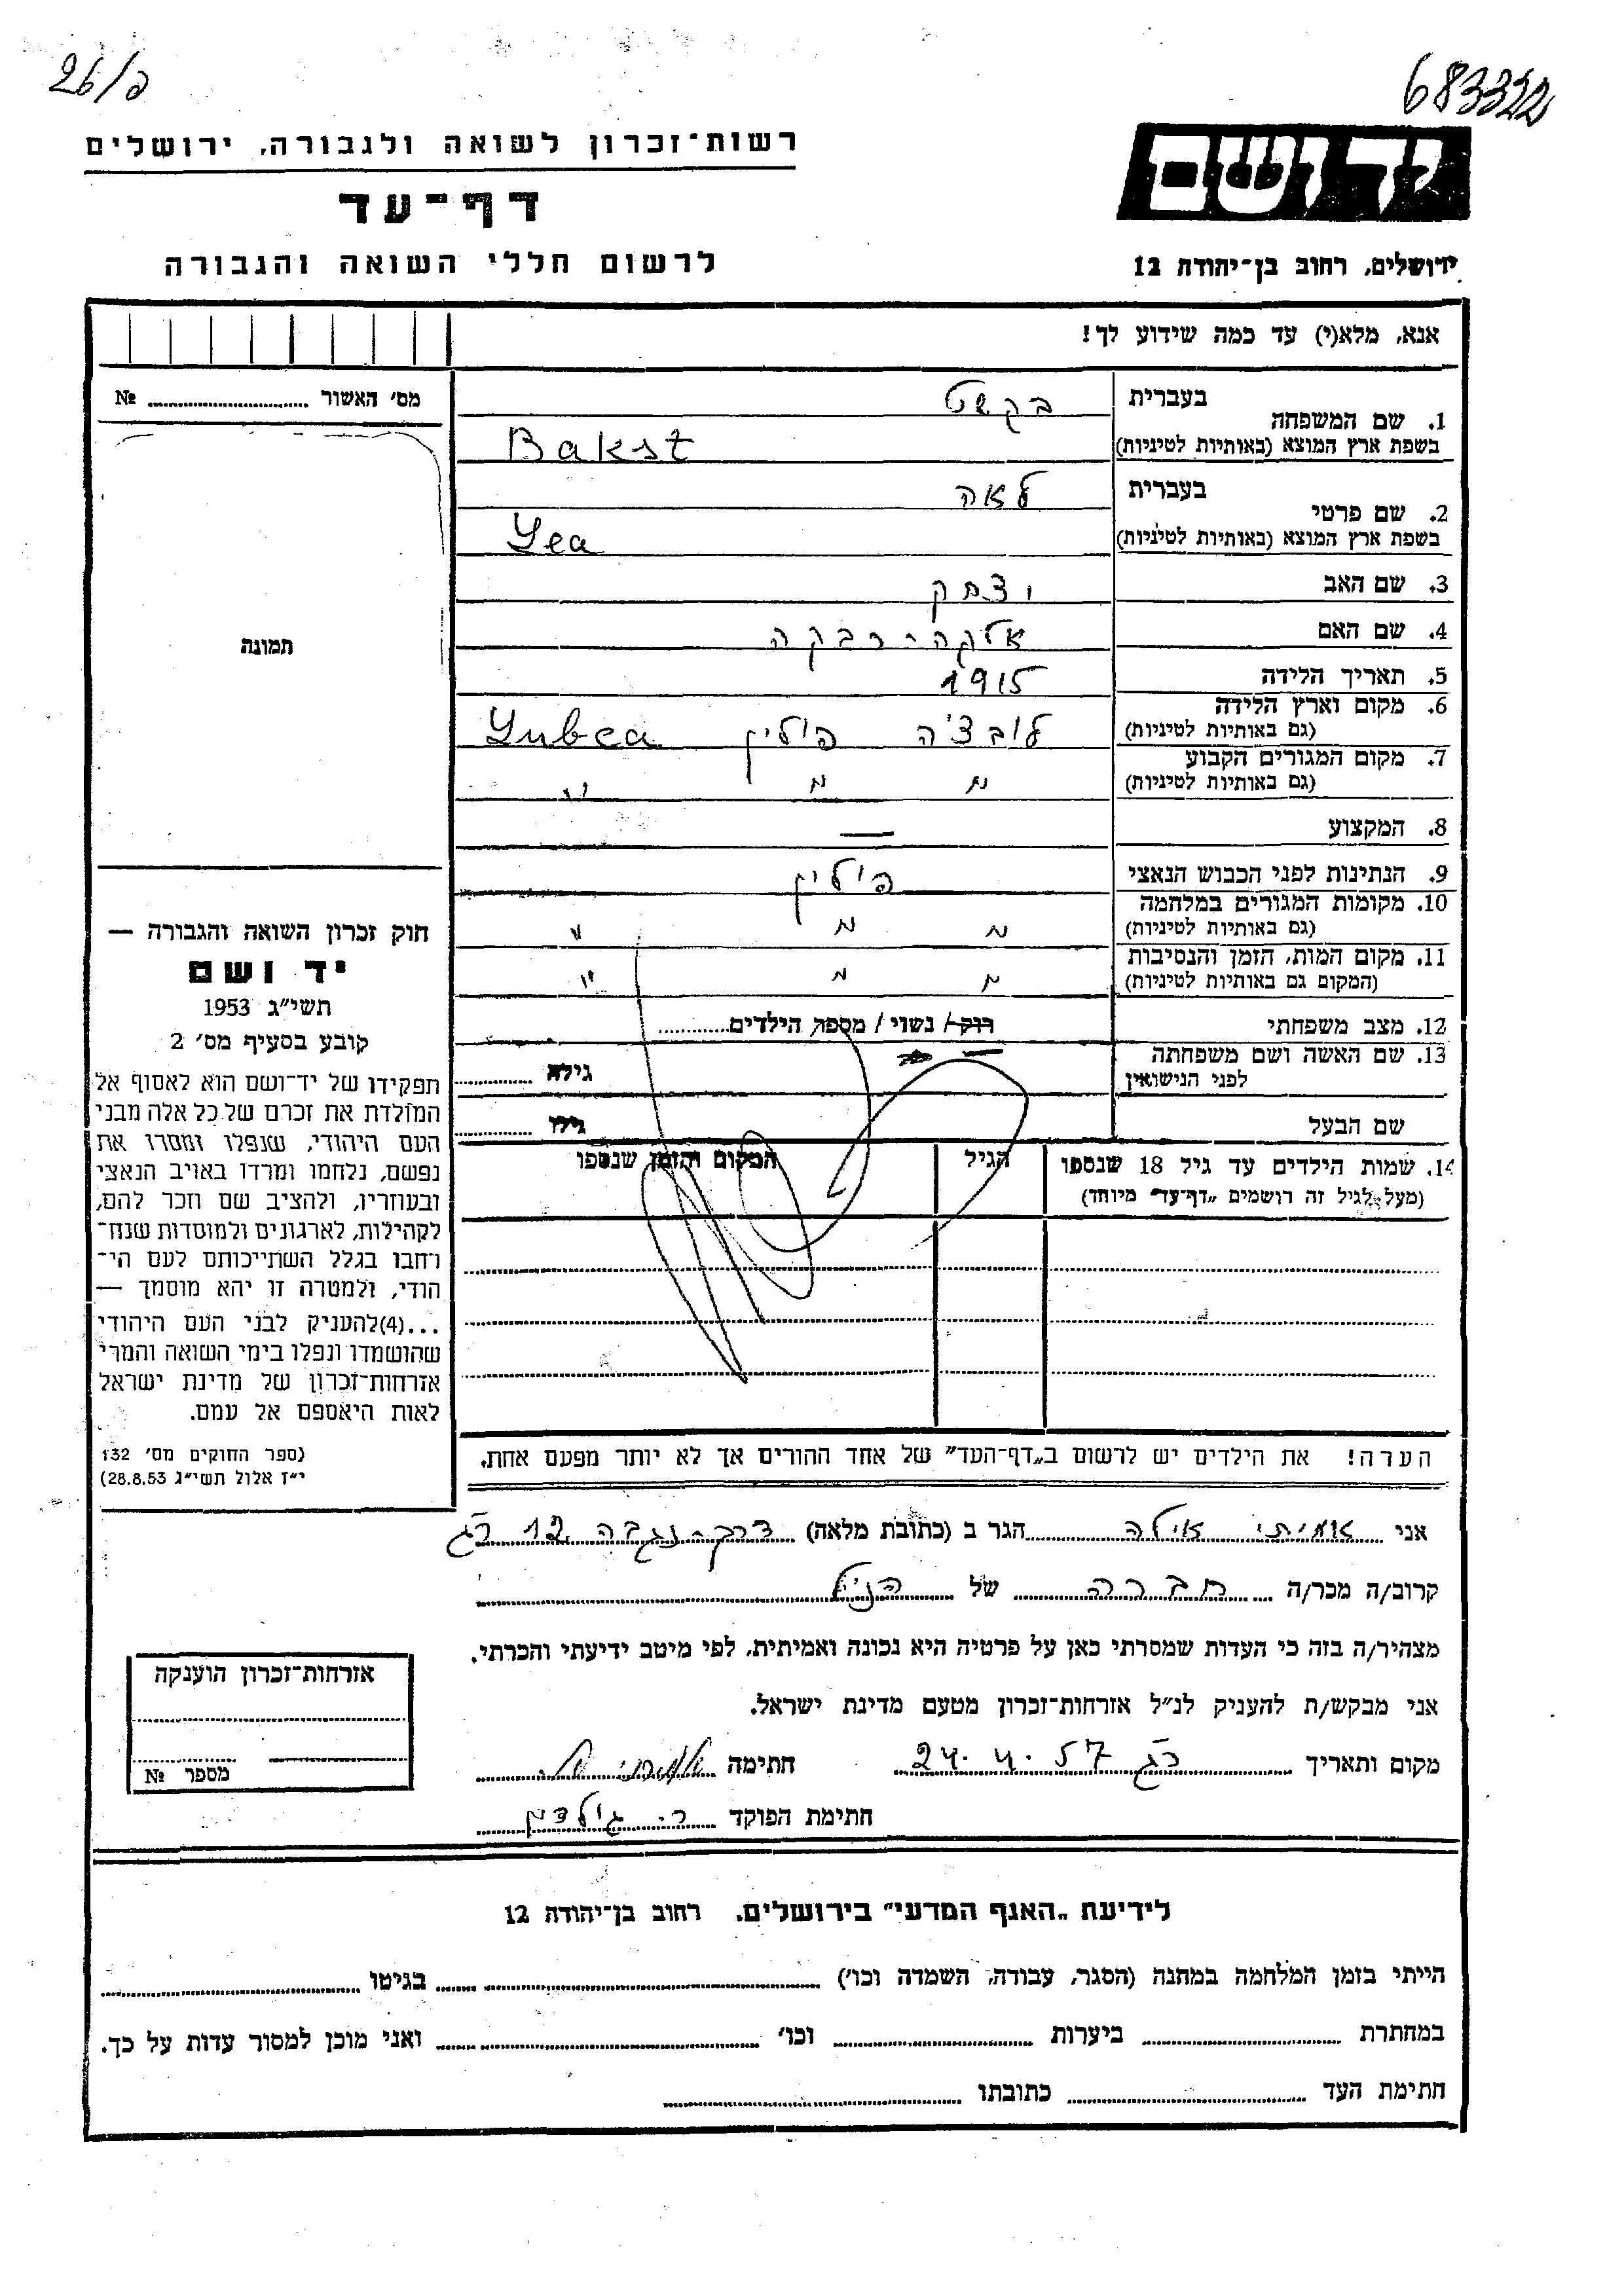 683322
26/פ
רשות־זכרון לשואה ולגבורה, ירושלים
דף־עד
לרשום חללי השואה והגבורה
יד ושם
ירושלים, רחוב בן־יהודה 12
אנא, מלא(י) עד כמה שידוע לך!
1. שם המשפחה בעברית בקשט
בשפת ארץ המוצא (באותיות לטיניות) Bakst
2. שם פרטי בעברית לאה
בשפת ארץ המוצא (באותיות לטיניות) Lea
3. שם האב יצחק
4. שם האם אלקה - רבקה
5. תאריך הלידה 1915
6. מקום וארץ הלידה לובצ'ה פולין Lubca
(גם באותיות לטיניות)
7. מקום המגורים הקבוע " " "
(גם באותיות לטיניות)
8. המקצוע —
9. הנתינות לפני הכבוש הנאצי פולין
10. מקומות המגורים במלחמה " " "
(גם באותיות לטיניות)
11. מקום המות, הזמן והנסיבות " " "
(המקום גם באותיות לטיניות)
12. מצב משפחתי רוק / נשוי / מספר הילדים
13. שם האשה ושם משפחתה גילה
לפני הנישואין
שם הבעל גילו
14. שמות הילדים עד גיל 18 שנספו הגיל המקום והזמן שנספו
(מעל לגיל זה רושמים "דף־עד" מיוחד)
הערה! את הילדים יש לרשום ב"דף־העד" של אחד ההורים אך לא יותר מפעם אחת.
מס' האשור №
תמונה
חוק זכרון השואה והגבורה —
יד ושם
תשי"ג 1953
קובע בסעיף מס' 2
תפקידו של יד־ושם הוא לאסוף אל
המולדת את זכרם של כל אלה מבני
העם היהודי, שנפלו ומסרו את
נפשם, נלחמו ומרדו באויב הנאצי
ובעוזריו, ולהציב שם וזכר להם,
לקהילות, לארגונים ולמוסדות שנח־
רחבו בגלל השתייכותם לעם הי־
הודי, ולמטרה זו יהא מוסמך —
...(4)להעניק לבני העם היהודי
שהושמדו ונפלו בימי השואה והמרי
אזרחות־זכרון של מדינת ישראל
לאות היאספם אל עמם.
(ספר החוקים מס' 132
י"ז אלול תשי"ג 28.8.53)
אני אמיתי אילה הגר ב (כתובת מלאה) דרך - נגבה 12 רג
קרוב/ה מכר/ה חברה של הנ"ל
מצהיר/ה בזה כי העדות שמסרתי כאן על פרטיה היא נכונה ואמיתית, לפי מיטב ידיעתי והכרתי.
אני מבקש/ת להעניק לנ"ל אזרחות־זכרון מטעם מדינת ישראל.
מקום ותאריך רג 24.4.57 חתימה
חתימת הפוקד
אזרחות־זכרון הוענקה
מספר №
לידיעת "האגף המדעי" בירושלים, רחוב בן־יהודה 12
הייתי בזמן המלחמה במחנה (הסגר, עבודה, השמדה וכו') בגיטו
במחתרת ביערות וכו' ואני מוכן למסור עדות על כך.
חתימת העד כתובתו